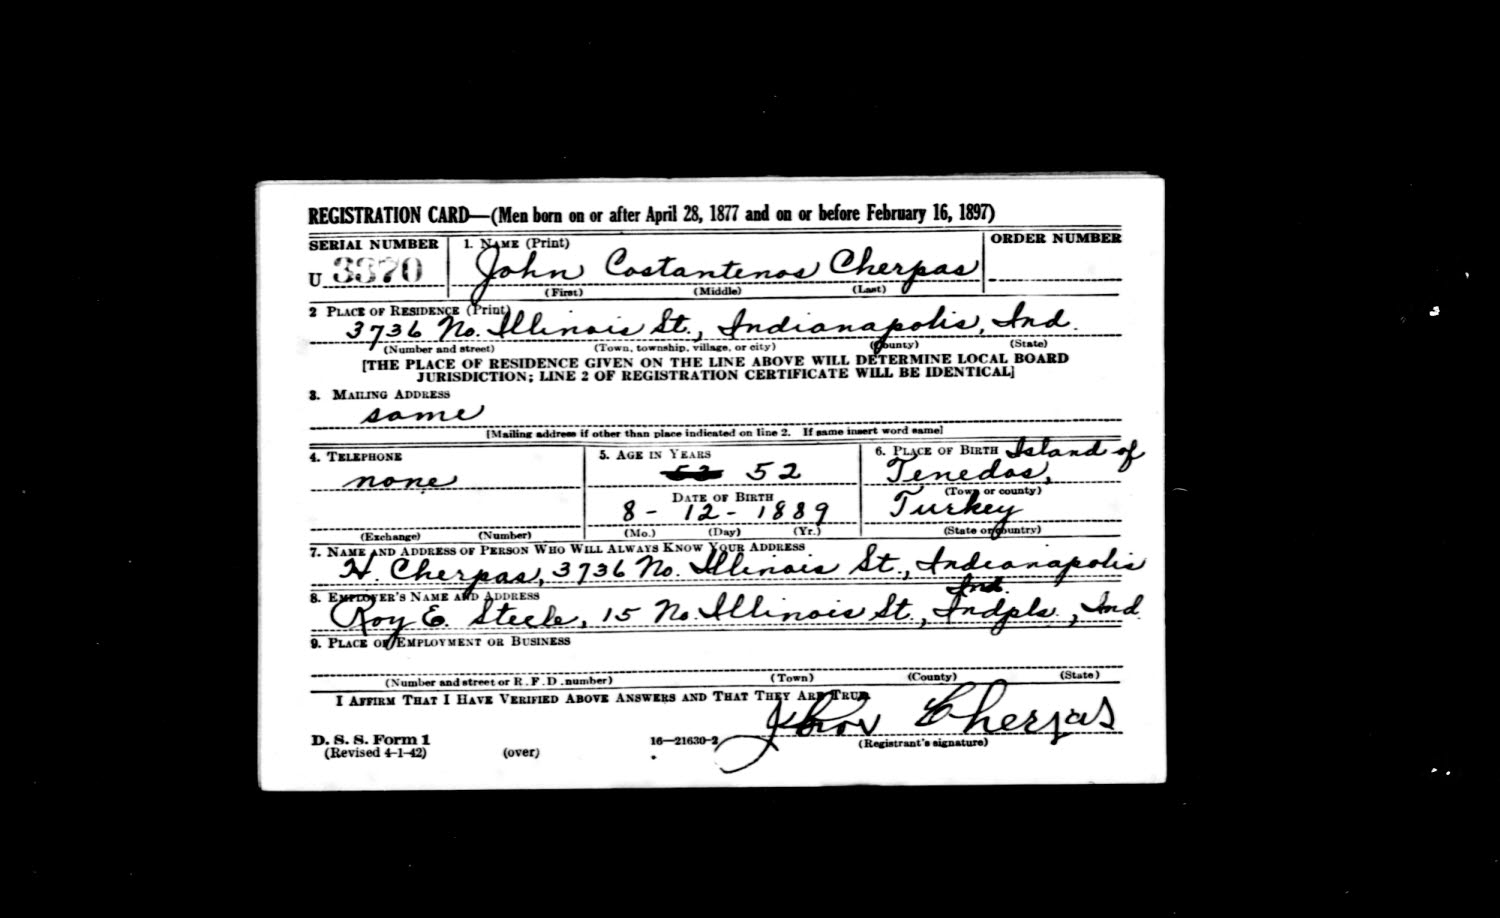 REGISTRATION CARD—(Men born on or after April 28, 1877 and on or before February 16, 1897)
SERIAL NUMBER
1. NAME (Print)
ORDER NUMBER
U 3370
John Costantenos Cherpas
(First) (Middle) (Last)
2 PLACE OF RESIDENCE (Print)
3736 No. Illinois St., Indianapolis, Ind.
(Number and street) (Town, township, village, or city) (County) (State)
[THE PLACE OF RESIDENCE GIVEN ON THE LINE ABOVE WILL DETERMINE LOCAL BOARD
JURISDICTION; LINE 2 OF REGISTRATION CERTIFICATE WILL BE IDENTICAL]
3. MAILING ADDRESS
same
[Mailing address if other than place indicated on line 2. If same insert word same]
4. TELEPHONE
none
(Exchange) (Number)
5. AGE IN YEARS
52
DATE OF BIRTH
8 - 12 - 1889
(Mo.) (Day) (Yr.)
6. PLACE OF BIRTH Island of
Tenedos,
(Town or county)
Turkey
(State or country)
7. NAME AND ADDRESS OF PERSON WHO WILL ALWAYS KNOW YOUR ADDRESS
H. Cherpas, 3736 No. Illinois St., Indianapolis
Ind.
8. EMPLOYER'S NAME AND ADDRESS
Roy E. Steele, 15 No. Illinois St., Indpls., Ind
9. PLACE OF EMPLOYMENT OR BUSINESS
(Number and street or R. F. D. number) (Town) (County) (State)
I AFFIRM THAT I HAVE VERIFIED ABOVE ANSWERS AND THAT THEY ARE TRUE
John Cherpas
D. S. S. Form 1
(Revised 4-1-42)
(over)
16—21630-2
(Registrant's signature)